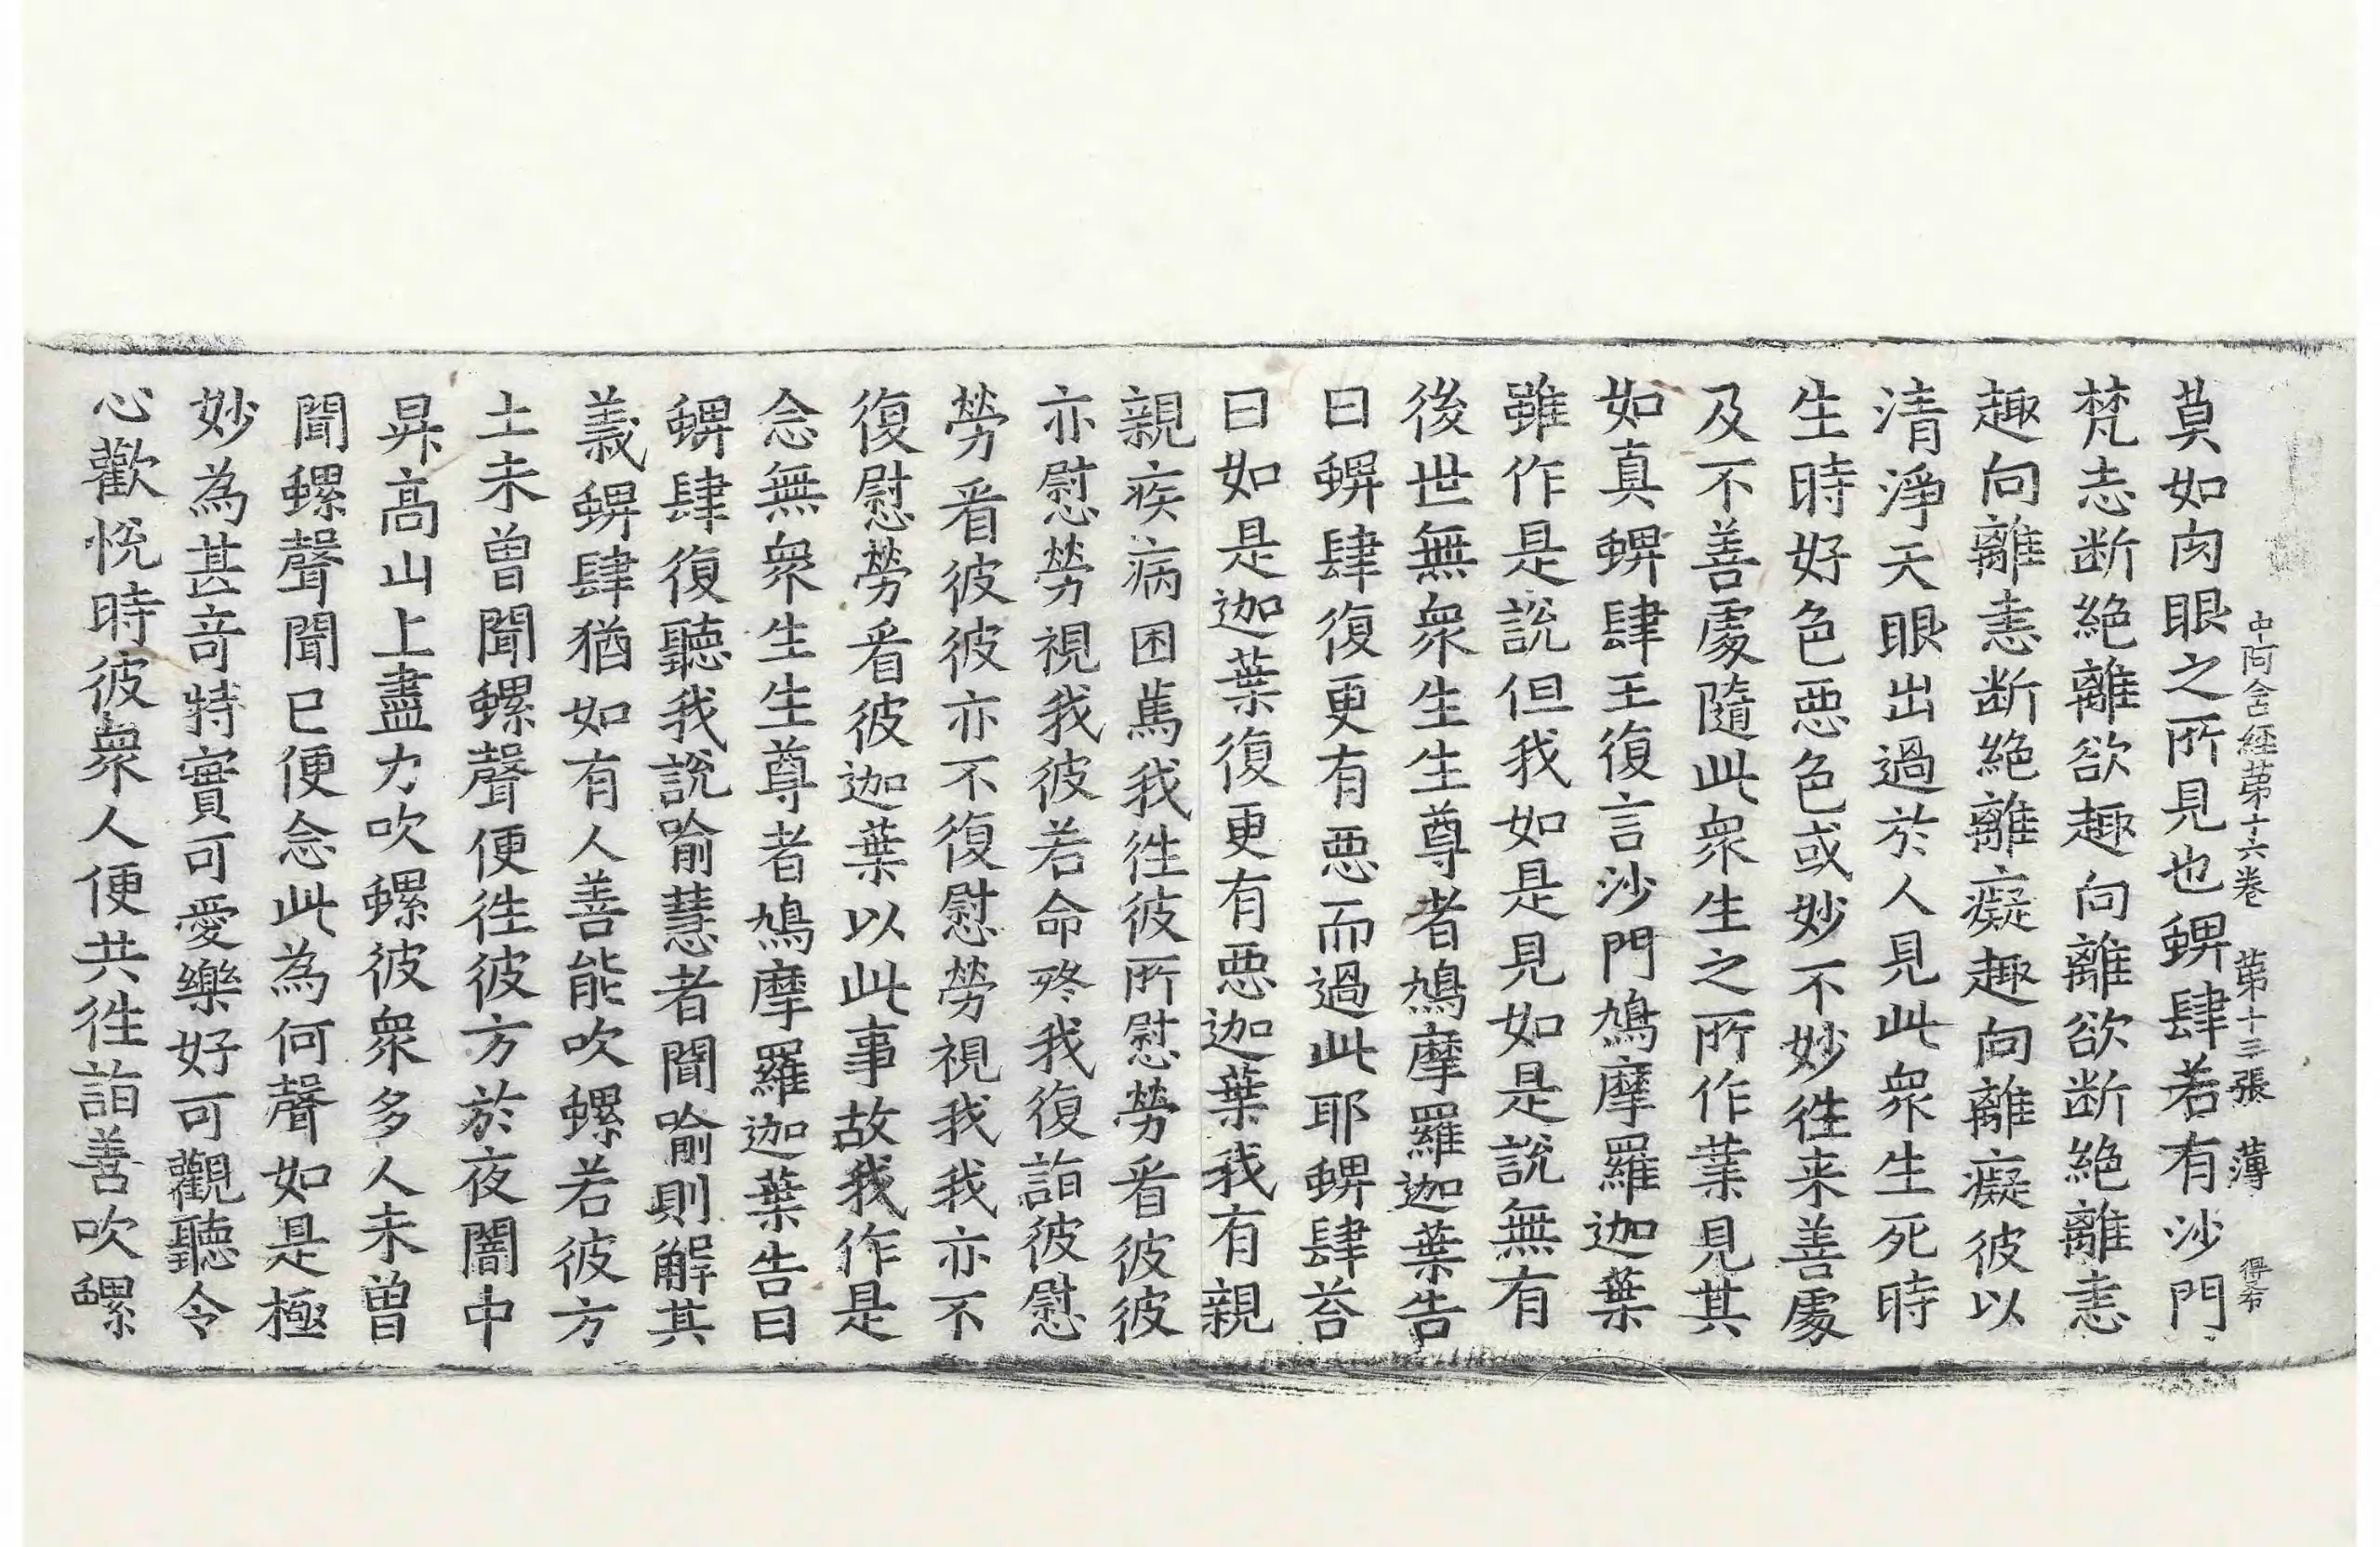 中阿含経苐十六巻　苐十三張　薄　得布
莫如肉眼之所見也蜱肆若有沙門
梵志断絶離欲趣向離欲断絶離恚
趣向離恚断絶離癡趣向離癡彼以
清淨天眼出過於人見此衆生死時
生時好色惡色或妙不妙徃来善處
及不善處隨此衆生之所作業見其
如真蜱肆王復言沙門鳩摩羅迦葉
雖作是說但我如是見如是說無有
後世無衆生生尊者鳩摩羅迦葉告
曰蜱肆復更有惡而過此耶蜱肆荅
曰如是迦葉復更有惡迦葉我有親
親疾病困萬我徃彼所慰勞看彼彼
亦慰勞視我彼若命終我復詣彼慰
勞看彼彼亦不復慰勞視我我亦不
復慰勞看彼迦葉以此事故我作是
念無衆生生尊者鳩摩羅迦葉告曰
蜱肆復聽我說喻慧者聞喻則解其
義蜱肆猶如有人善能吹螺若彼方
土未曾聞螺聲便徃彼方於夜闇中
昇高山上盡力吹螺彼衆多人未曾
聞螺聲聞已便念此為何聲如是極
妙為甚竒特實可愛樂好可觀聽令
心歡悅時彼衆人便共徃詣善吹螺